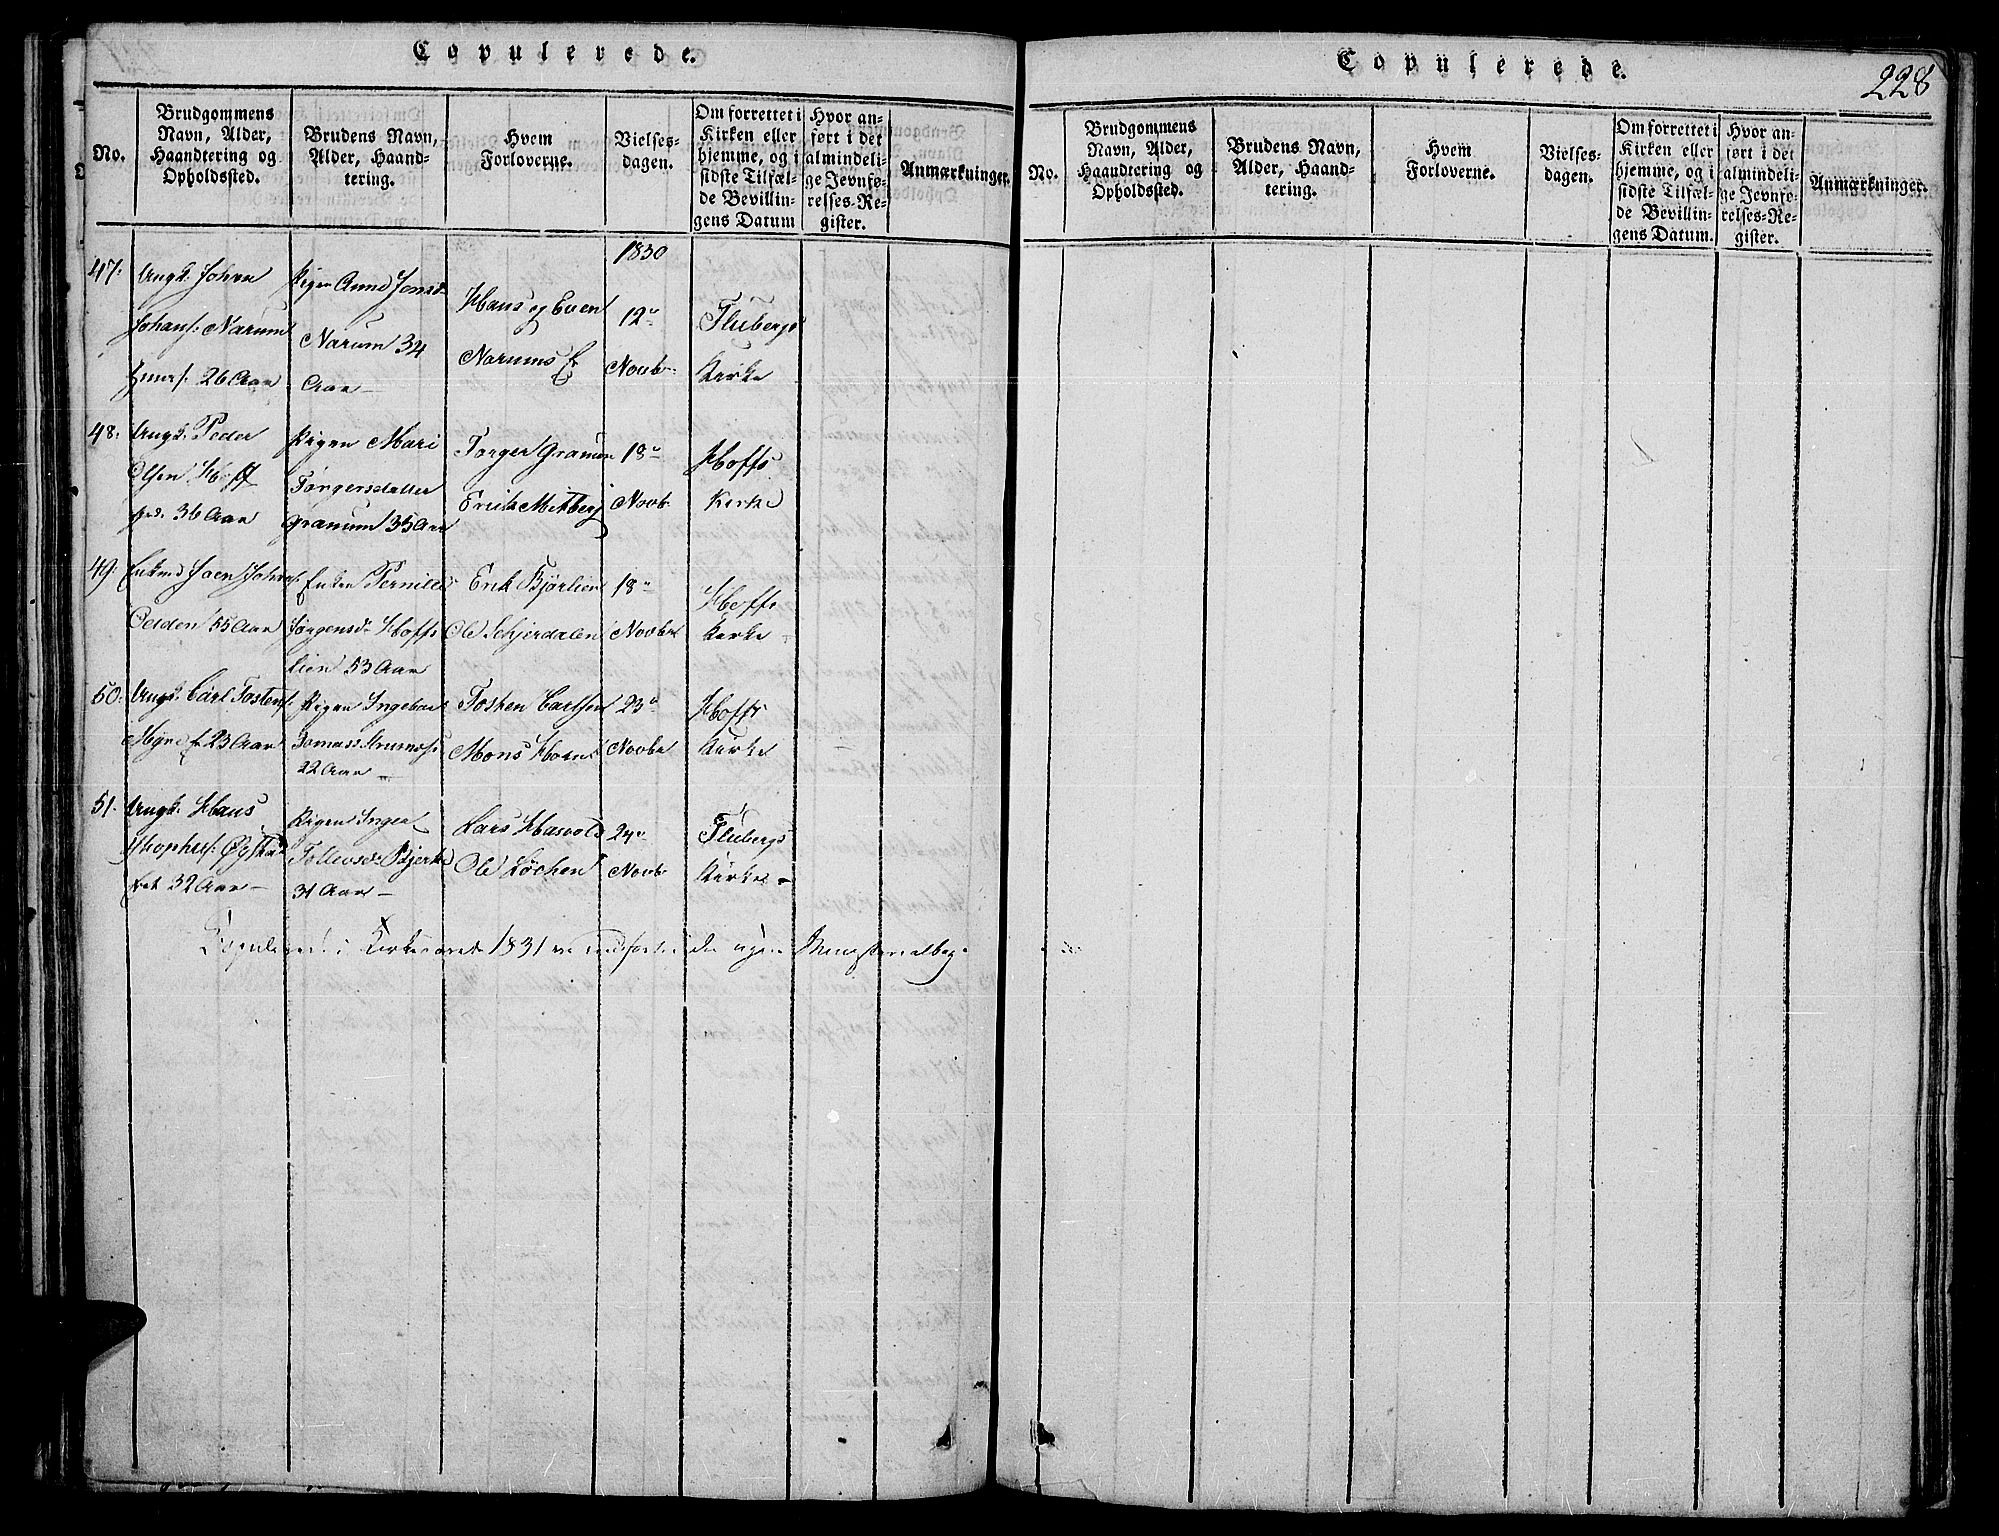 Copulerede.
No.
Brudgommens
Navn, Alder,
Haandtering og
Opholdssted.
Brudens Navn,
Alder, Haand-
tering.
Hvem
Forloverne.
Vielses-
dagen.
Om forrettet i
Kirken eller
hjemme, og i
sidste Tilfæl-
de Bevillin-
gens Datum
Hvor an-
ført i det
almindeli-
ge Jevnfø-
relses-Re-
gister.
Anmærkninger.
1830
47.
Ungk. Johan
Johans. Narum
26 Aar
Pigen Anne Jensd.
Narum 34
Aar
Hans og Even
Narums E
12te
Novb.
Flubergs
Kirke
48.
Ungk. Peder
Olsen Hoff
36 Aar
Pigen Mari
Torgersdatter
Granum 35 Aar
Torger Granum
Erik Mitberg
18de
Novb.
Hoffs
Kirke
49.
Enkem. Joen Johns.
Odden 55 Aar
Enken Pernille
Jørgensd. Hoffs
lien 53 Aar
Erik Bjørlien
Ole Schjerdalen
18de
Novbr
Hoffs
Kirke
50.
Ungk. Carl Tostens.
23 Aar
Pigen Ingebor
22 Aar
Tosten Carlsen
Mons
23de
Novbr
Hoffs
Kirke
51.
Ungk. Hans
32 Aar
Pigen Inger
Tollevsd. Bjerke
31 Aar
Lars Hasvold
Ole Løchen
24de
Novb.
Flubergs
Kirke
Copulerede i Kirkeaaret 1831 ere indførte i den nye Ministerialbog.
Copulerede.
228
No.
Brudgommens
Navn, Alder,
Haandtering og
Opholdssted.
Brudens Navn,
Alder, Haand-
tering.
Hvem
Forloverne.
Vielses-
dagen.
Om forrettet i
Kirken eller
hjemme, og i
sidste Tilfæl-
de Bevillin-
gens Datum.
Hvor an-
ført i det
almindeli-
ge Jevnfø-
relses-Re-
gister.
Anmærkninger.